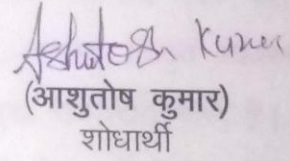 Ashutosh Kumar
(आशुतोष कुमार)
शोधार्थी